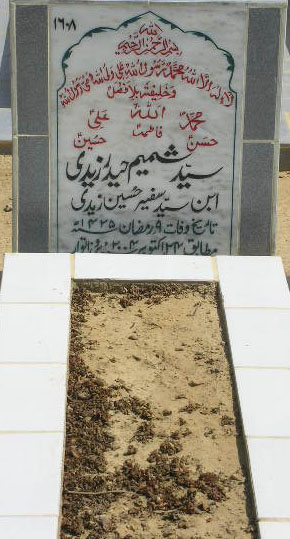 ۱۶۰۸
اللہ
بسم اللہ الرحمن الرحیم
لا الہ الا اللہ محمد رسول اللہ علی ولی اللہ وصی رسول اللہ
و خلیفتہ بلا فصل
محمدؐ اللہ علیؑ
حسنؑ فاطمہؑ حسینؑ
سید شمیم حیدر زیدی
ابن سید سفیر حسین زیدی
تاریخ وفات ۹ رمضان ۱۴۲۵ سنہ
مطابق ۲۴ اکتوبر ۲۰۰۴ء بروز اتوار